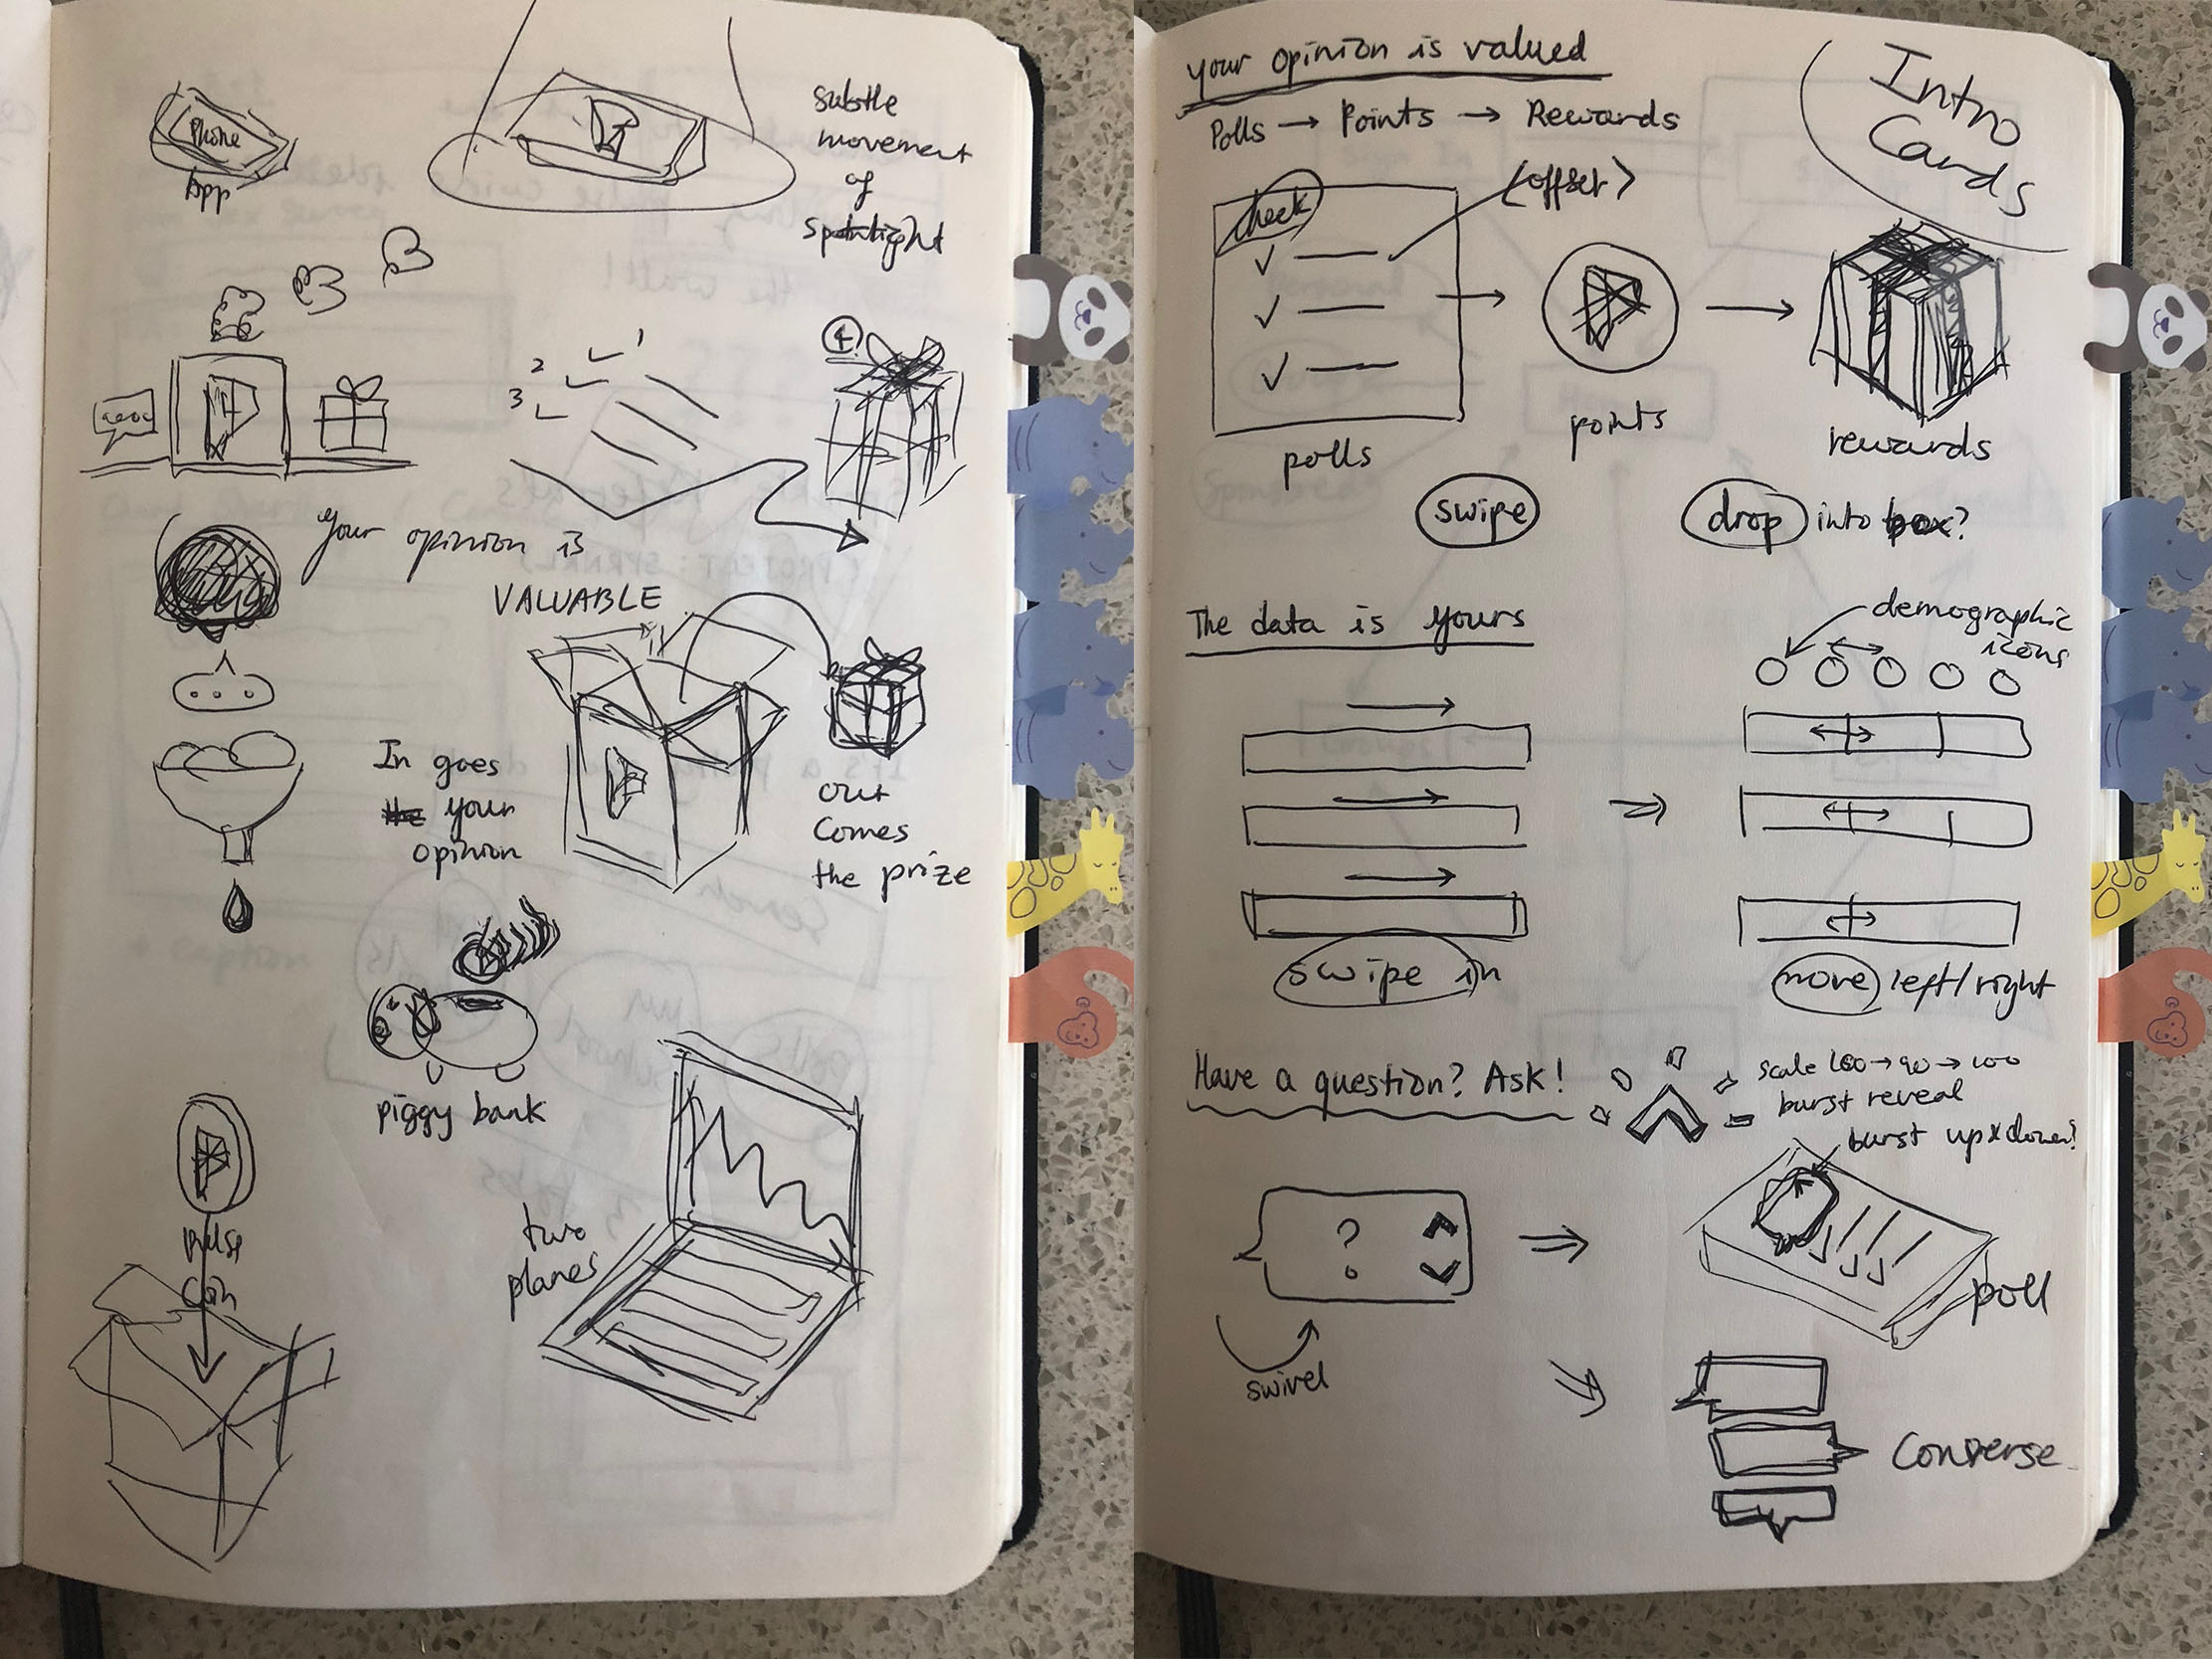 Phone
App
subtle
movement
of
spotlight
1
2
3
4
your opinion is
VALUABLE
In goes
your
opinion
out
comes
the prize
piggy bank
pulse
coin
two
planes
Intro
Cards
your opinion is valued
Polls → Points → Rewards
(offset)
check
polls
points
rewards
swipe
drop into box?
The data is yours
demographic
icons
swipe in
move left/right
Have a question? Ask!
scale 100→90→100
burst reveal
burst up x down?
?
swivel
poll
Converse